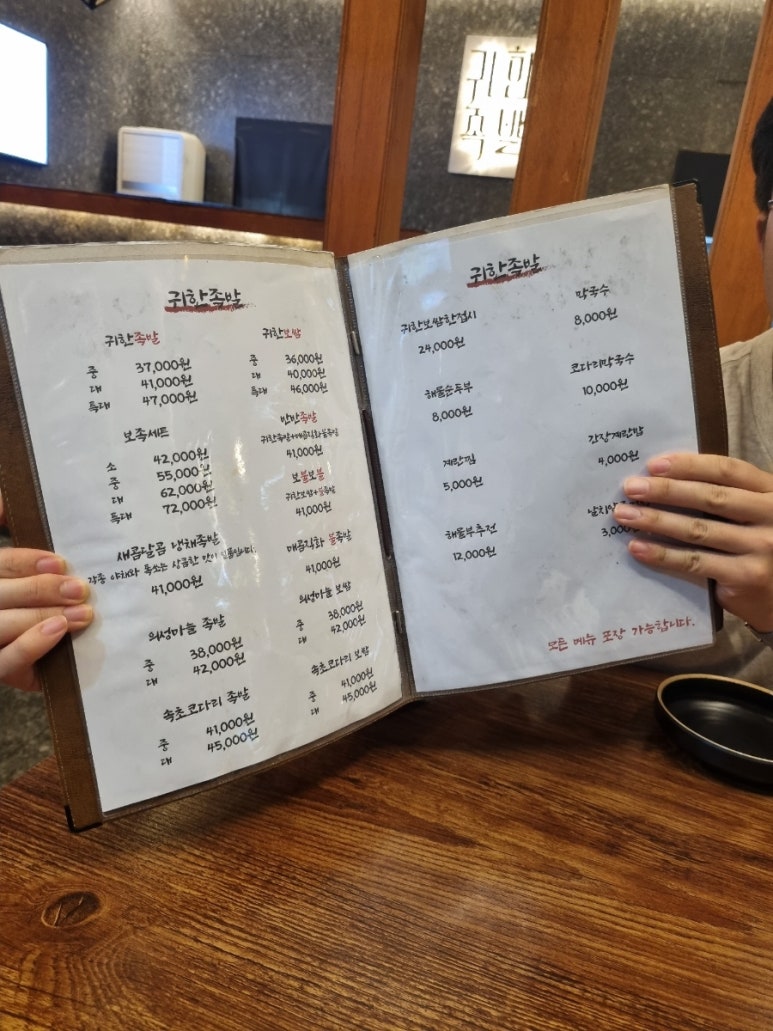 귀한
족발
귀한족발
귀한족발
중 37,000원
대 41,000원
특대 47,000원
보족세트
소 42,000원
중 55,000원
대 62,000원
특대 72,000원
새콤달콤 냉채족발
각종 야채와 톡쏘는 상큼한 맛이 일품입니다.
41,000원
의성마늘 족발
중 38,000원
대 42,000원
속초코다리 족발
중 41,000원
대 45,000원
귀한보쌈
중 36,000원
대 40,000원
특대 46,000원
반반족발
귀한족발+매콤직화불족발
41,000원
보불보불
귀한보쌈+불족발
41,000원
매콤직화 불족발
41,000원
의성마늘 보쌈
중 38,000원
대 42,000원
속초코다리 보쌈
중 41,000원
대 45,000원
귀한족발
귀한보쌈한접시
24,000원
해물순두부
8,000원
계란찜
5,000원
해물부추전
12,000원
막국수
8,000원
코다리막국수
10,000원
간장계란밥
4,000원
날치알
3,000
모든 메뉴 포장 가능합니다.